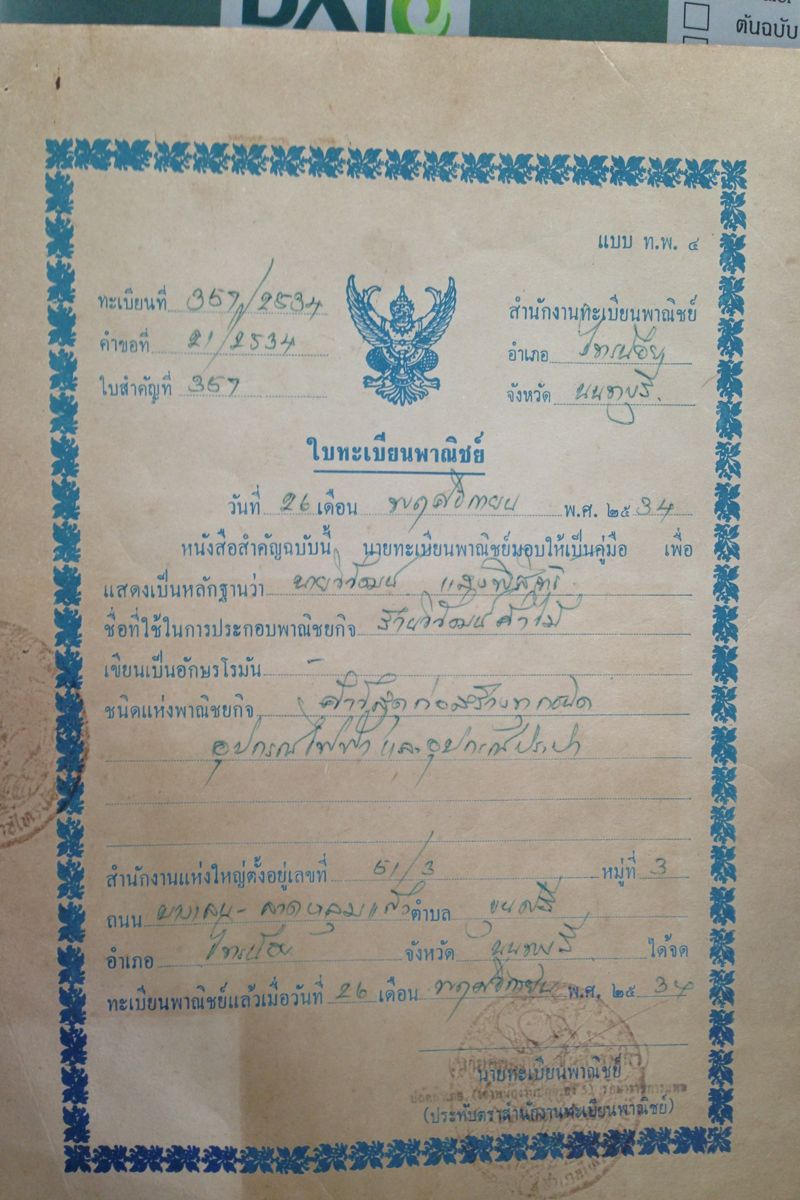 ต้นฉบับ
แบบ ท.พ. ๔
ทะเบียนที่ 357/2534
คำขอที่ 21/2534
ใบสำคัญที่ 357
สำนักงานทะเบียนพาณิชย์
อำเภอ ไทรน้อย
จังหวัด นนทบุรี.
ใบทะเบียนพาณิชย์
วันที่ 26 เดือน พฤศจิกายน พ.ศ. ๒๕34
หนังสือสำคัญฉบับนี้ นายทะเบียนพาณิชย์มอบให้เป็นคู่มือ เพื่อ
แสดงเป็นหลักฐานว่า นายวิวัฒน์
ชื่อที่ใช้ในการประกอบพาณิชยกิจ ร้านวิวัฒน์ค้าไม้
เขียนเป็นอักษรโรมัน -
ชนิดแห่งพาณิชยกิจ ค้าวัสดุก่อสร้างทุกชนิด
อุปกรณ์ไฟฟ้า และอุปกรณ์ประปา
สำนักงานแห่งใหญ่ตั้งอยู่เลขที่ 51/3 หมู่ที่ 3
ถนน บางเลน-ลาดหลุมแก้ว ตำบล ขุนศรี
อำเภอ ไทรน้อย จังหวัด นนทบุรี ได้จด
ทะเบียนพาณิชย์แล้วเมื่อวันที่ 26 เดือน พฤศจิกายน พ.ศ. ๒๕34
นายทะเบียนพาณิชย์
(ประทับตราสำนักงานทะเบียนพาณิชย์)